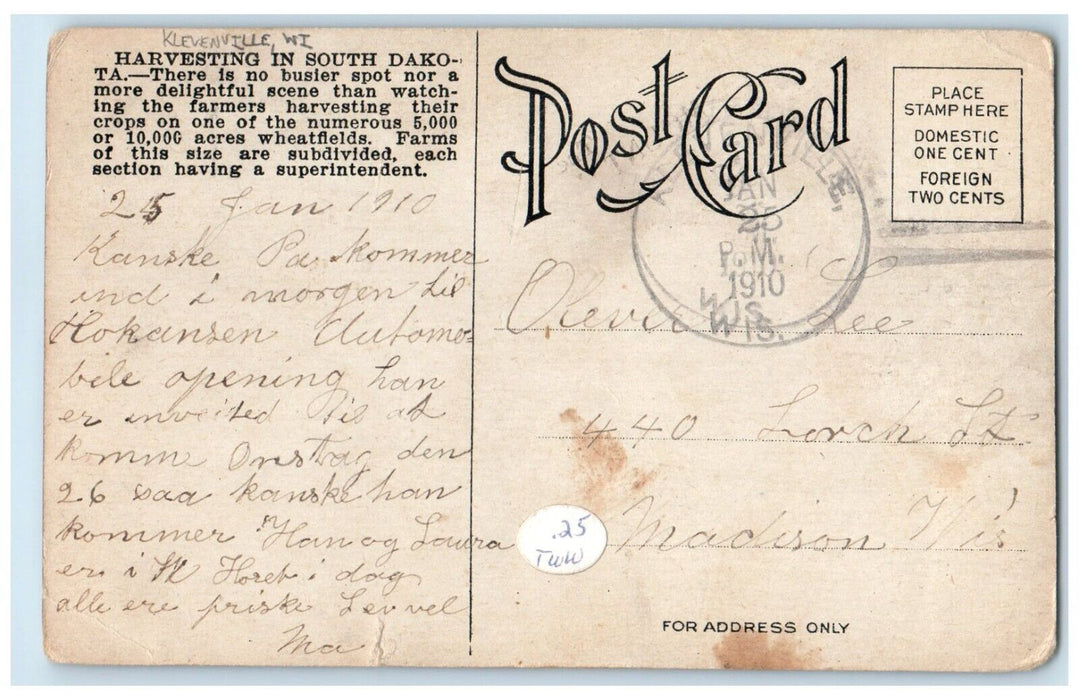 KLEVENVILLE, WI
HARVESTING IN SOUTH DAKO-
TA.—There is no busier spot nor a
more delightful scene than watch-
ing the farmers harvesting their
crops on one of the numerous 5,000
or 10,000 acres wheatfields. Farms
of this size are subdivided, each
section having a superintendent.
25 Jan 1910
Kanske Pa kommer
ind i morgen til
Hokansen Automo-
bile opening han
er invited til at
komme Onstag den
26 saa kanske han
kommer Han og Laura
er i Horeb i dag
alle ere friske Lev vel
Ma
Post Card
PLACE
STAMP HERE
DOMESTIC
ONE CENT
FOREIGN
TWO CENTS
VILLE,
JAN
25
P.M.
1910
WIS.
WIS.
Olevia Lee
440 Lorch St
Madison Wis
.25
TWW
FOR ADDRESS ONLY